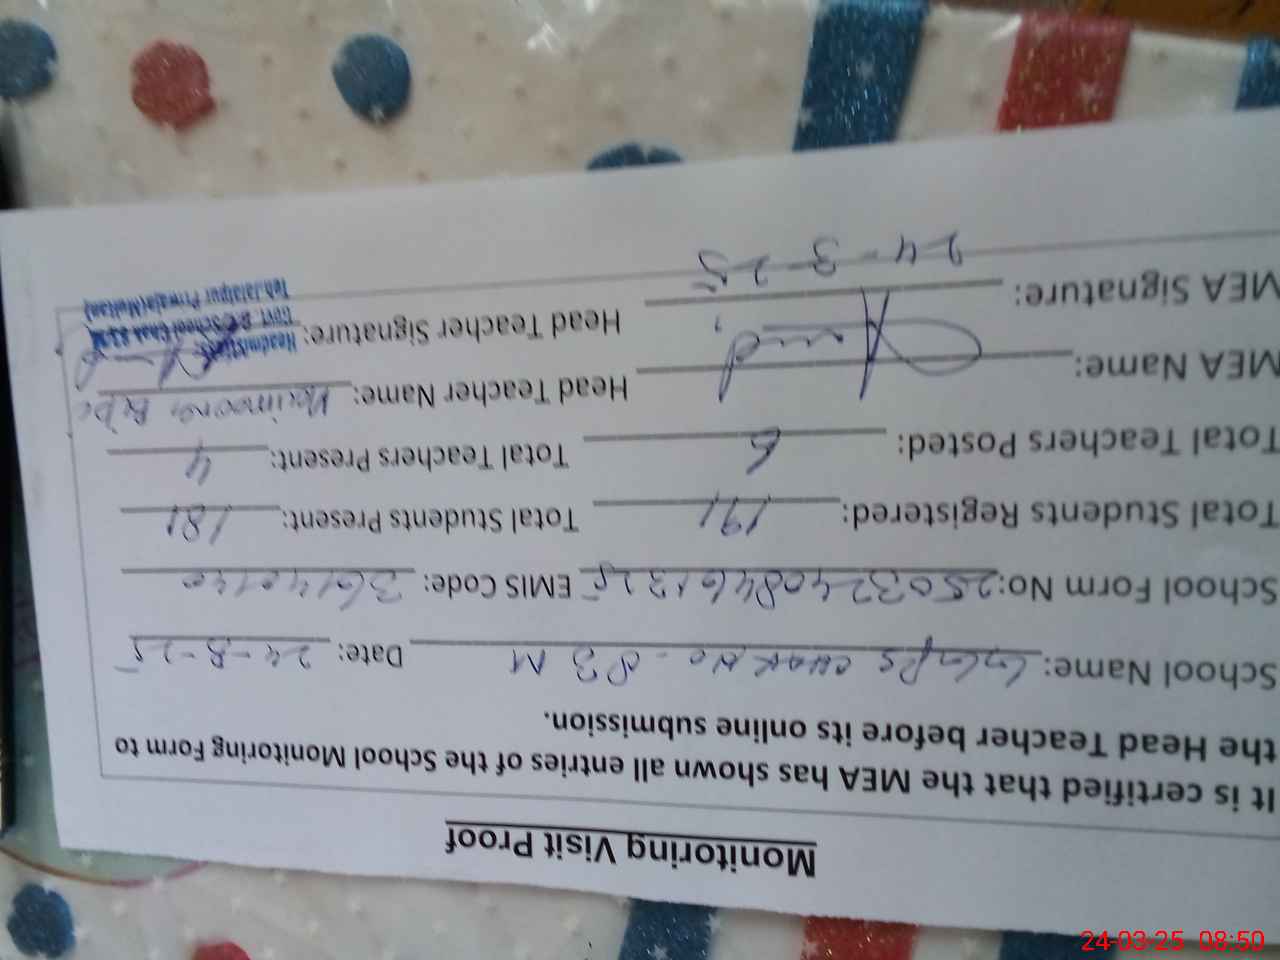 Monitoring Visit Proof
It is certified that the MEA has shown all entries of the School Monitoring Form to
the Head Teacher before its online submission.
School Name: GGPS CHAK NO - 83 M Date: 24-3-25
School Form No: 25032408461325 EMIS Code: 36140140
Total Students Registered: 191 Total Students Present: 181
Total Teachers Posted: 6 Total Teachers Present: 4
MEA Name: Head Teacher Name: Maimoona
MEA Signature: Head Teacher Signature:
24-3-25
Headmistress
Govt. School Chak 83/M
Teh Jalalpur Pirwala (Multan)
24-03-25 08:50